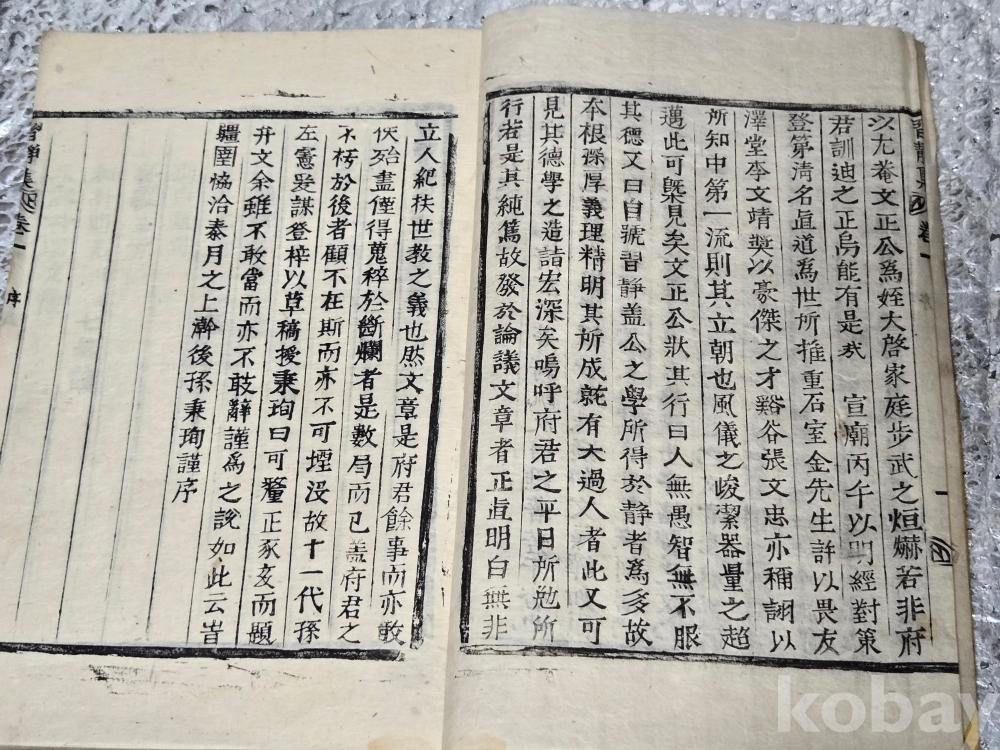 以尤菴文正公爲姪大啓家庭步武之烜爀若非府
君訓迪之正烏能有是㢤 宣廟丙午以明經對策
登第淸名直道爲世所推重石室金先生許以畏友
澤堂李文靖奬以豪傑之才谿谷張文忠亦稱詡以
所知中第一流則其立朝也風儀之峻潔器量之超
邁此可槩見矣文正公狀其行曰人無愚智無不服
其德又曰自號習靜盖公之學所得於静者爲多故
本根深厚義理精明其所成就有大過人者此又可
見其德學之造詣宏深矣嗚呼府君之平日所勉所
行若是其純篤故發於論議文章者正直明白無非
習靜集 卷一
立人紀扶世教之義也然文章是府君餘事而亦散
佚殆盡僅得蒐稡於斷爛者是數局而已盖府君之
不朽於後者顧不在斯而亦不可堙没故十一代孫
左憲爰謀登梓以草稿授秉珣曰可釐正豕亥而題
弁文余雖不敢當而亦不敢辭謹爲之說如此云旹
疆圉恊洽泰月之上澣後孫秉珣謹序
習靜集 卷一 序
kobay